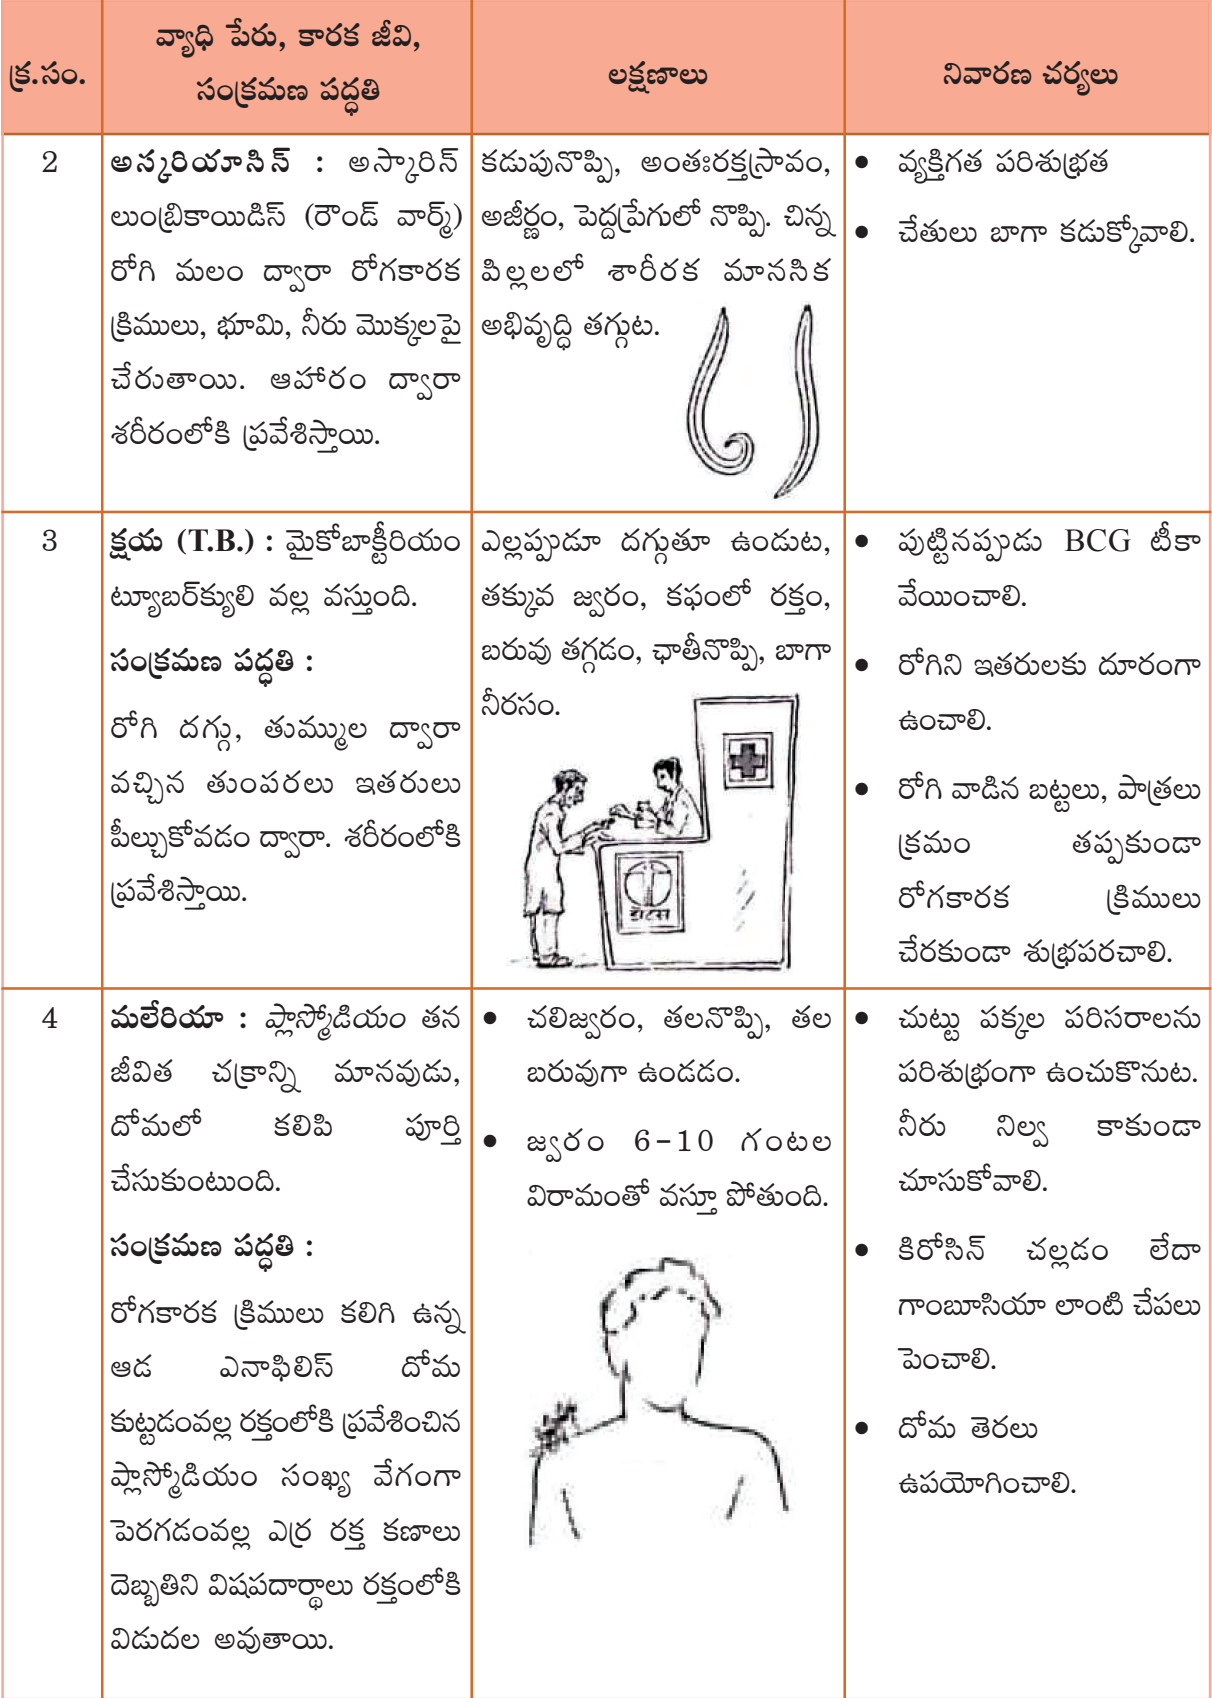 క్ర.సం.
వ్యాధి పేరు, కారక జీవి,
సంక్రమణ పద్ధతి
లక్షణాలు
నివారణ చర్యలు
2
అస్కరియాసిస్ : అస్కారిస్
లుంబ్రికాయిడిస్ (రౌండ్ వార్మ్)
రోగి మలం ద్వారా రోగకారక
క్రిములు, భూమి, నీరు మొక్కలపై
చేరుతాయి. ఆహారం ద్వారా
శరీరంలోకి ప్రవేశిస్తాయి.
కడుపునొప్పి, అంతఃరక్తస్రావం,
అజీర్ణం, పెద్దప్రేగులో నొప్పి. చిన్న
పిల్లలలో శారీరక మానసిక
అభివృద్ధి తగ్గుట.
• వ్యక్తిగత పరిశుభ్రత
• చేతులు బాగా కడుక్కోవాలి.
3
క్షయ (T.B.) : మైకోబాక్టీరియం
ట్యూబర్‌క్యులి వల్ల వస్తుంది.
సంక్రమణ పద్ధతి :
రోగి దగ్గు, తుమ్ముల ద్వారా
వచ్చిన తుంపరలు ఇతరులు
పీల్చుకోవడం ద్వారా. శరీరంలోకి
ప్రవేశిస్తాయి.
ఎల్లప్పుడూ దగ్గుతూ ఉండుట,
తక్కువ జ్వరం, కఫంలో రక్తం,
బరువు తగ్గడం, ఛాతీనొప్పి, బాగా
నీరసం.
डॉटस
• పుట్టినప్పుడు BCG టీకా
వేయించాలి.
• రోగిని ఇతరులకు దూరంగా
ఉంచాలి.
• రోగి వాడిన బట్టలు, పాత్రలు
క్రమం తప్పకుండా
రోగకారక క్రిములు
చేరకుండా శుభ్రపరచాలి.
4
మలేరియా : ప్లాస్మోడియం తన
జీవిత చక్రాన్ని మానవుడు,
దోమలో కలిపి పూర్తి
చేసుకుంటుంది.
సంక్రమణ పద్ధతి :
రోగకారక క్రిములు కలిగి ఉన్న
ఆడ ఎనాఫిలిస్ దోమ
కుట్టడంవల్ల రక్తంలోకి ప్రవేశించిన
ప్లాస్మోడియం సంఖ్య వేగంగా
పెరగడంవల్ల ఎర్ర రక్త కణాలు
దెబ్బతిని విషపదార్థాలు రక్తంలోకి
విడుదల అవుతాయి.
• చలిజ్వరం, తలనొప్పి, తల
బరువుగా ఉండడం.
• జ్వరం 6-10 గంటల
విరామంతో వస్తూ పోతుంది.
• చుట్టు పక్కల పరిసరాలను
పరిశుభ్రంగా ఉంచుకొనుట.
నీరు నిల్వ కాకుండా
చూసుకోవాలి.
• కిరోసిన్ చల్లడం లేదా
గాంబూసియా లాంటి చేపలు
పెంచాలి.
• దోమ తెరలు
ఉపయోగించాలి.